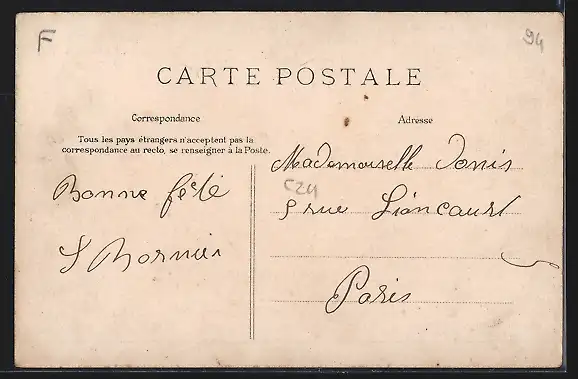 F
94
CARTE POSTALE
Correspondance
Adresse
Tous les pays étrangers n'acceptent pas la
correspondance au recto, se renseigner à la Poste.
Mademoiselle Donis
C24
Bonne fête
5 rue Liancourt
S Bornier
Paris